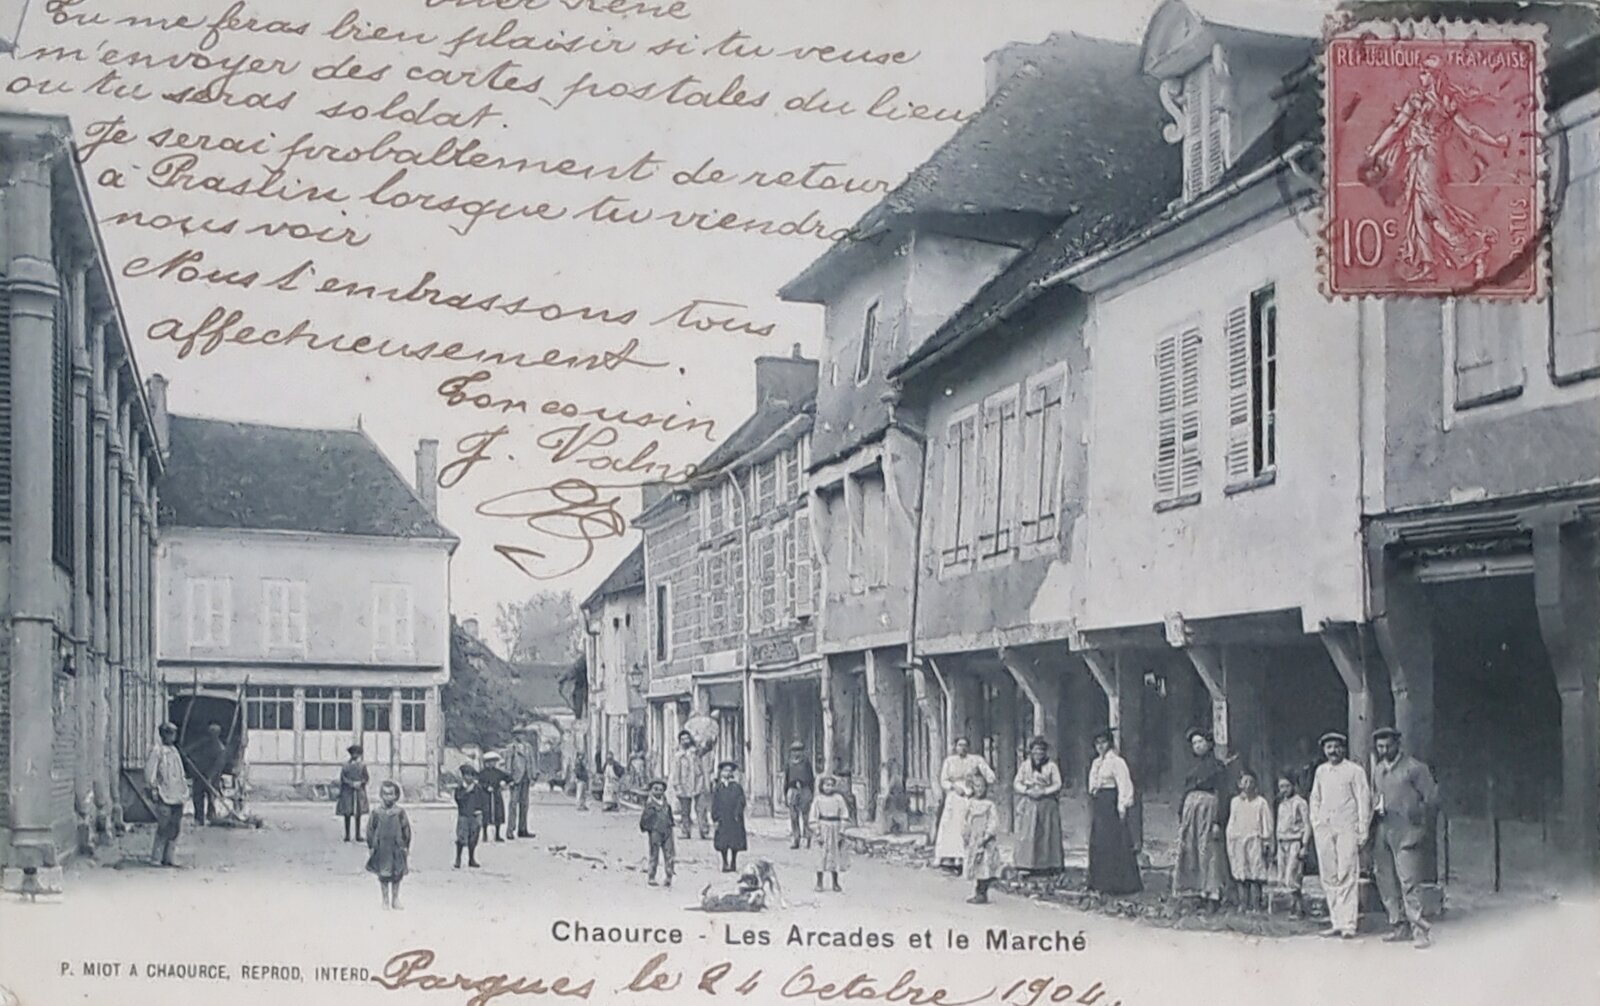 Cher René
Tu me feras bien plaisir si tu veuse
m'envoyer des cartes postales du lieu
ou tu seras soldat.
Je serai probablement de retour
à Praslin lorsque tu viendras
nous voir
Nous t'embrassons tous
affectueusement.
Ton cousin
J.
REPUBLIQUE FRANÇAISE
10c
POSTES
Chaource - Les Arcades et le Marché
P. MIOT A CHAOURCE, REPROD, INTERD
Pargues le 24 Octobre 1904.